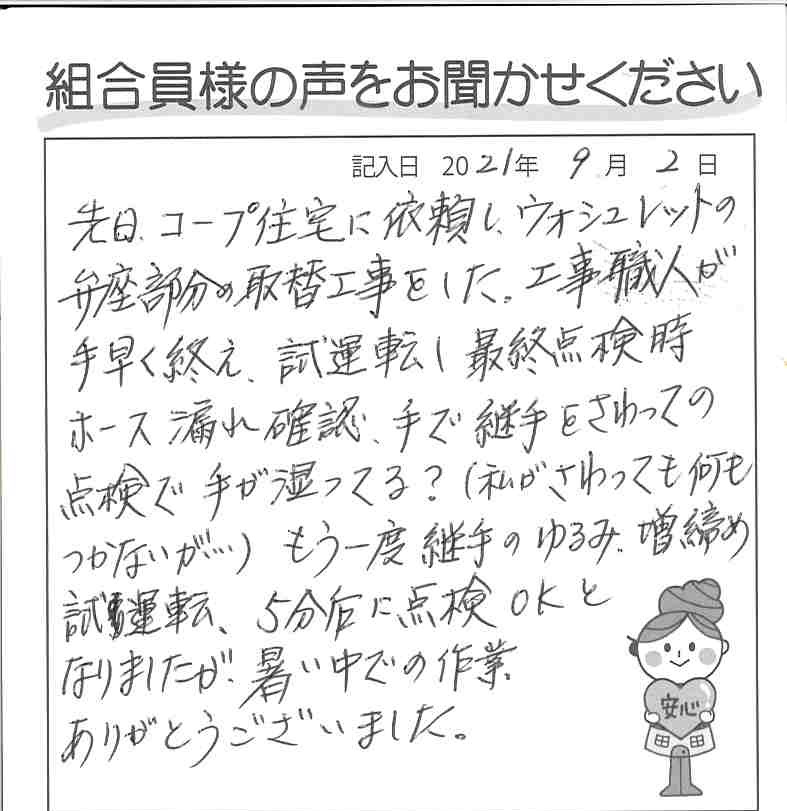 組合員様の声をお聞かせください
記入日 2021年 9月 2日
先日、コープ住宅に依頼し、ウォシュレットの
弁座部分の取替工事をした。工事職人が
手早く終え、試運転し最終点検時
ホース漏れ確認、手で継手をさわっての
点検で手が湿ってる?(私がさわっても何も
つかないが…)もう一度継手のゆるみ、増締め
試運転、5分后に点検OKと
なりましたが、暑い中での作業
ありがとうございました。
安心